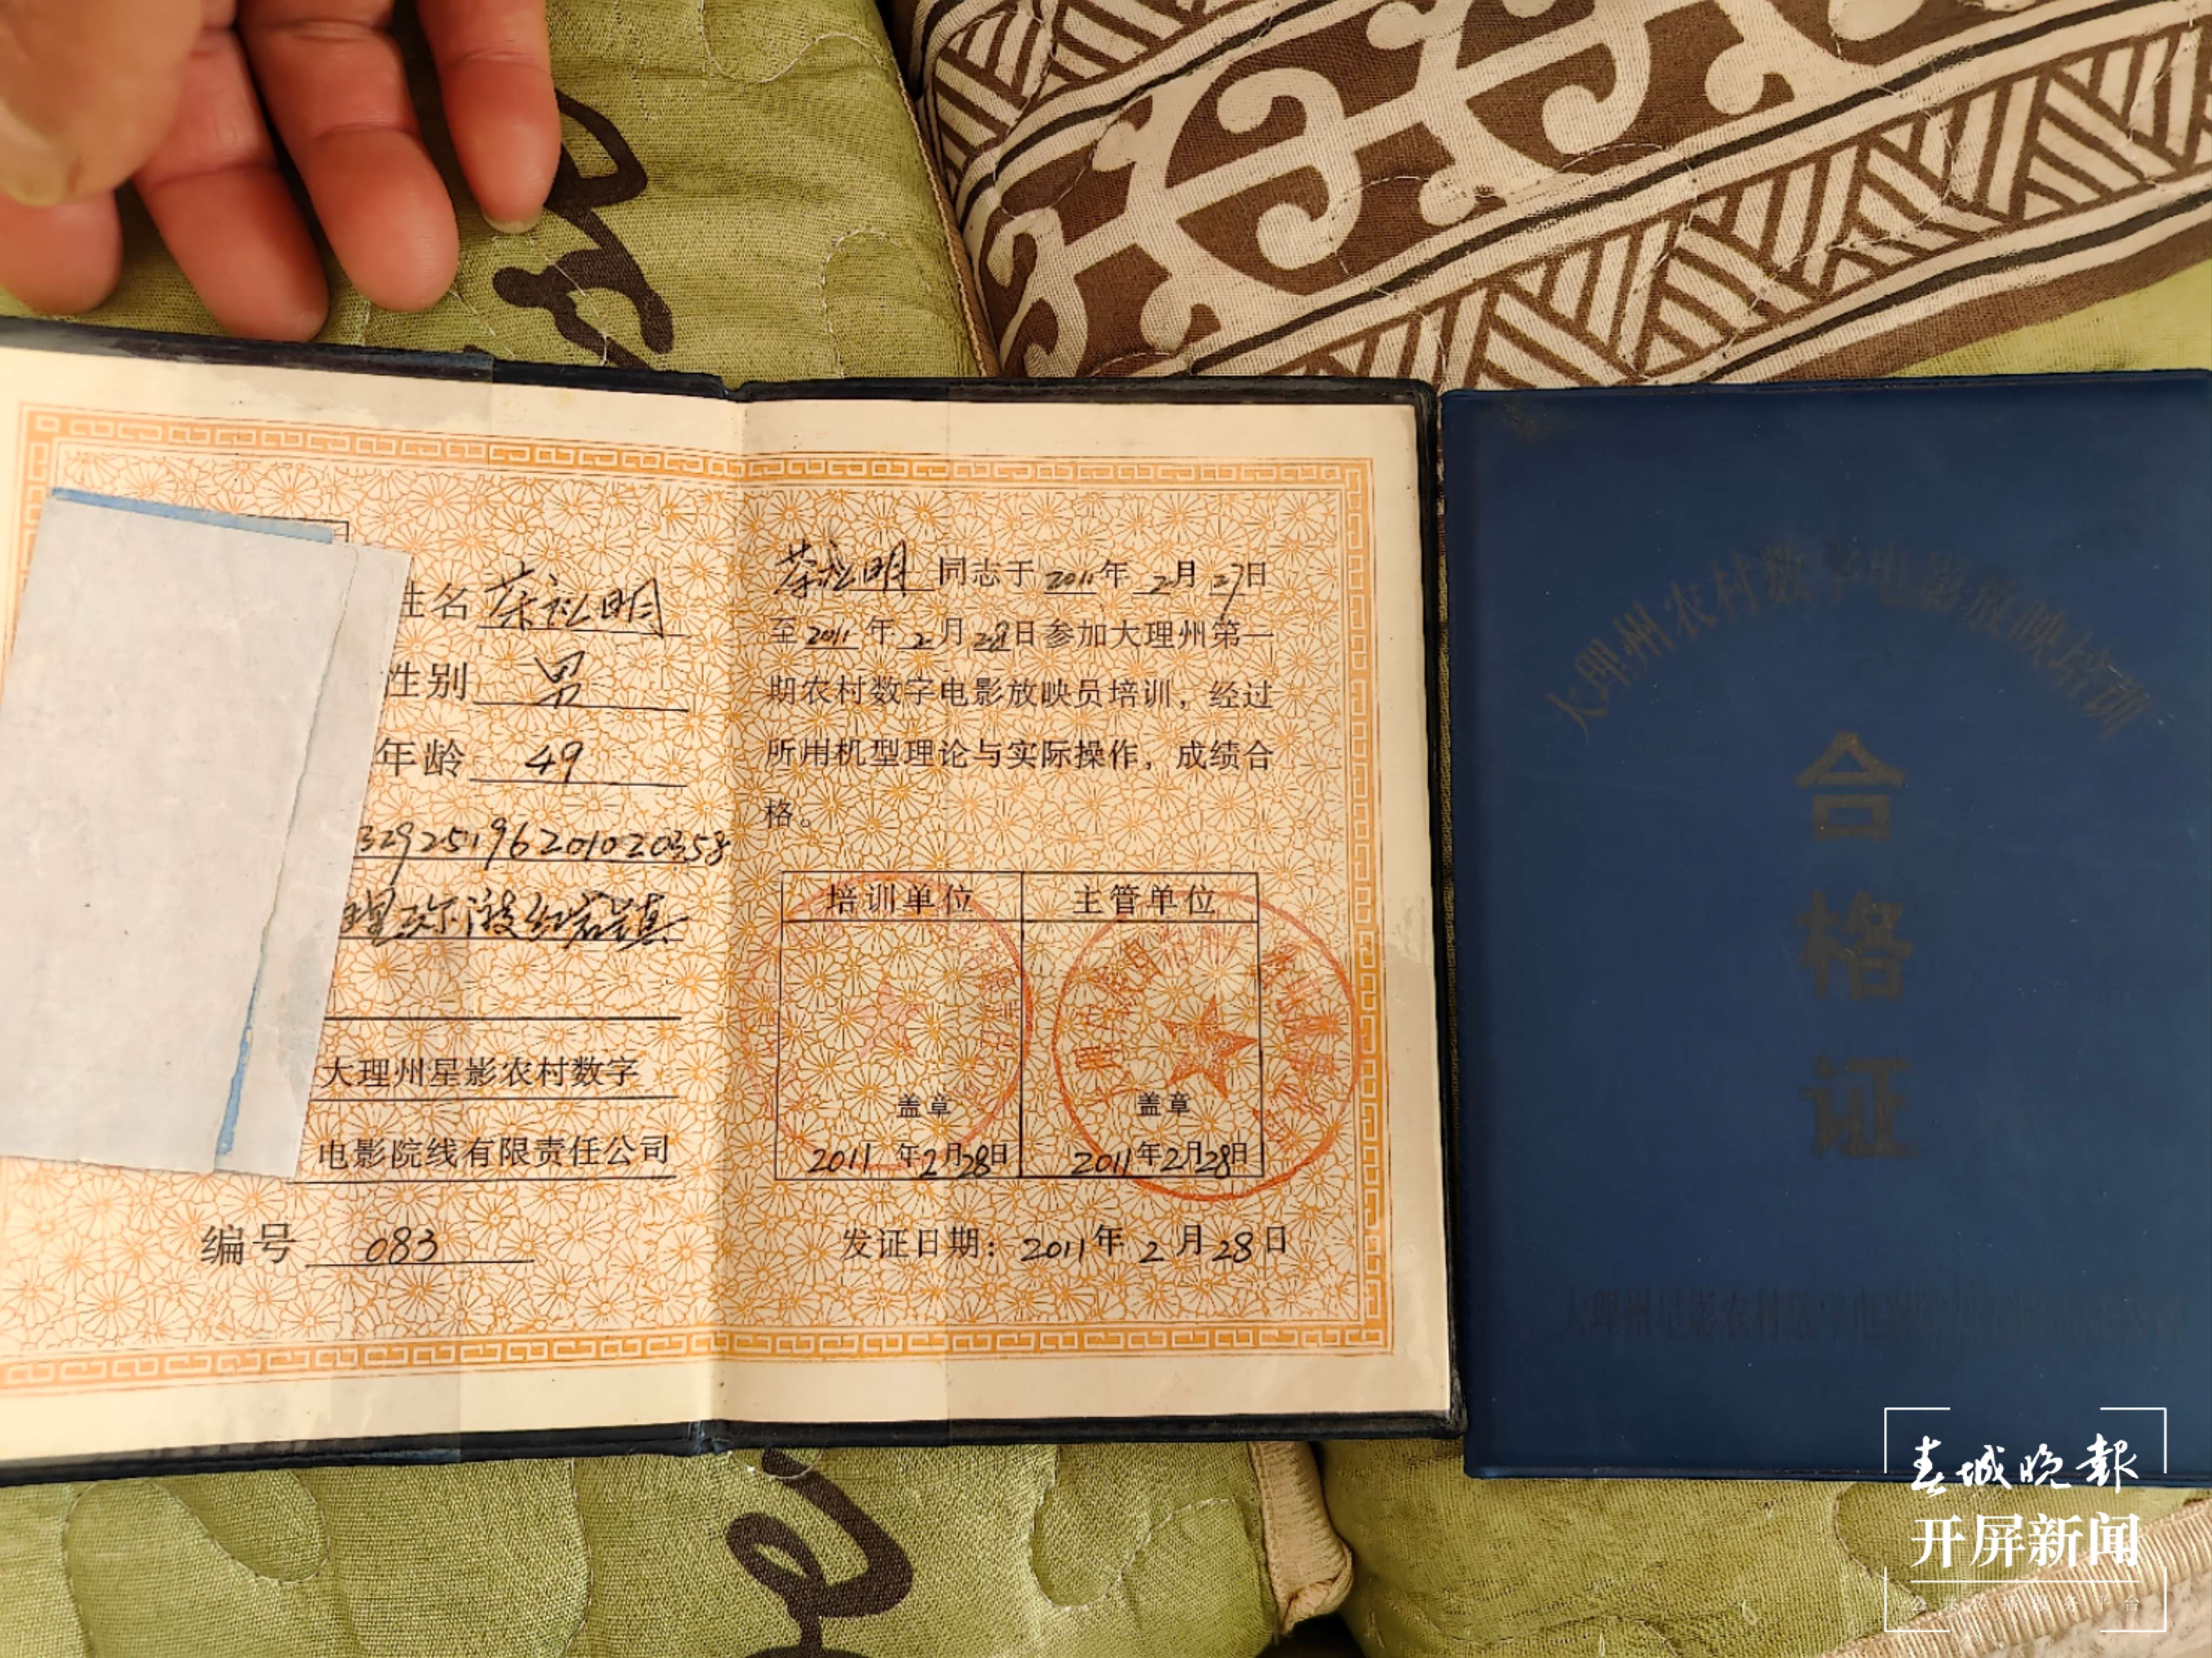 姓名 茶松明
性别 男
年龄 49
32925196201020358
理弥渡红岩镇
大理州星影农村数字
电影院线有限责任公司
编号 083
茶松明 同志于 2011 年 2 月 27 日
至 2011 年 2 月 28 日参加大理州第一
期农村数字电影放映员培训，经过
所用机型理论与实际操作，成绩合
格。
培训单位 主管单位
盖章 盖章
2011 年 2 月 28 日 2011 年 2 月 28 日
发证日期：2011 年 2 月 28 日
大理州农村数字电影放映培训
合
格
证
大理州星影农村数字电影院线有限责任公司
春城晚報
开屏新闻